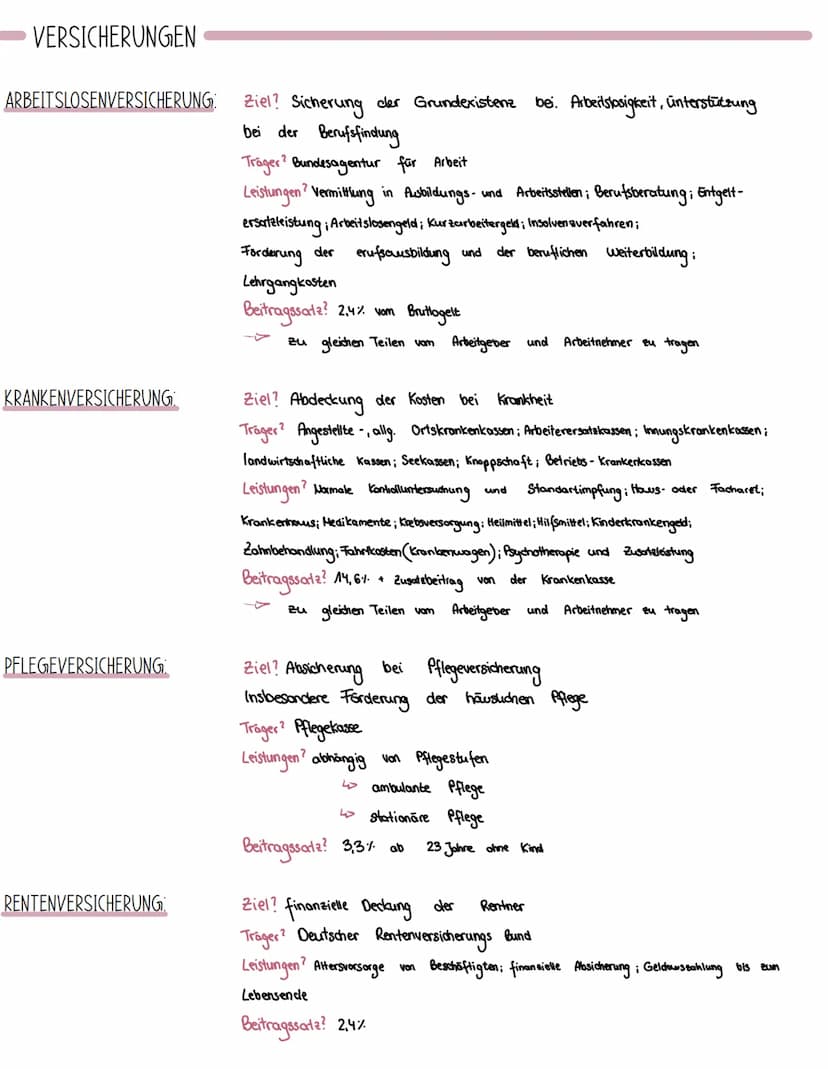 VERSICHERUNGEN
ARBEITSLOSENVERSICHERUNG: Ziel? Sicherung der Grundexistenz bei. Arbeitslosigkeit, Unterstützung
bei der Berufsfindung
Träger? Bundesagentur für Arbeit
Leistungen? Vermittlung in Ausbildungs- und Arbeitsstellen; Berufsberatung; Entgelt-
ersatzleistung; Arbeitslosengeld; Kurzarbeitergeld; Insolvensverfahren;
Förderung der erufsausbildung und der beruflichen Weiterbildung;
Lehrgangkosten
Beitragssatz? 2,4% vom Bruttogelt
→ zu gleichen Teilen vom Arbeitgeber und Arbeitnehmer zu tragen
KRANKENVERSICHERUNG: Ziel? Abdeckung der Kosten bei Krankheit
Träger? Angestellte -, allg. Ortskrankenkassen; Arbeiterersatzkassen; Innungskrankenkassen;
landwirtschaftliche Kassen; Seekassen; Knappschaft; Betriebs-Krankenkassen
Leistungen? Normale Kontrolluntersuchung und Standartimpfung; Haus- oder Facharzt;
Krankenhaus; Medikamente; Krebsversorgung; Heilmittel; Hilfsmittel; Kinderkrankengeld;
Zahnbehandlung; Fahrtkosten (Krankenwagen); Psychotherapie und Zusatzleistung
Beitragssatz? 14,6% + Zusatzbeitrag von der Krankenkasse
→ zu gleichen Teilen vom Arbeitgeber und Arbeitnehmer zu tragen
PFLEGEVERSICHERUNG: Ziel? Absicherung bei Pflegeversicherung
Insbesondere Förderung der häuslichen Pflege
Träger? Pflegekasse
Leistungen? abhängig von Pflegestufen
↳ ambulante Pflege
↳ stationäre Pflege
Beitragssatz? 3,3% ab 23 Jahre ohne Kind
RENTENVERSICHERUNG: Ziel? finanzielle Deckung der Rentner
Träger? Deutscher Rentenversicherungs Bund
Leistungen? Altersvorsorge von Beschäftigten; finanzielle Absicherung; Geldauszahlung bis zum
Lebensende
Beitragssatz? 2,4%